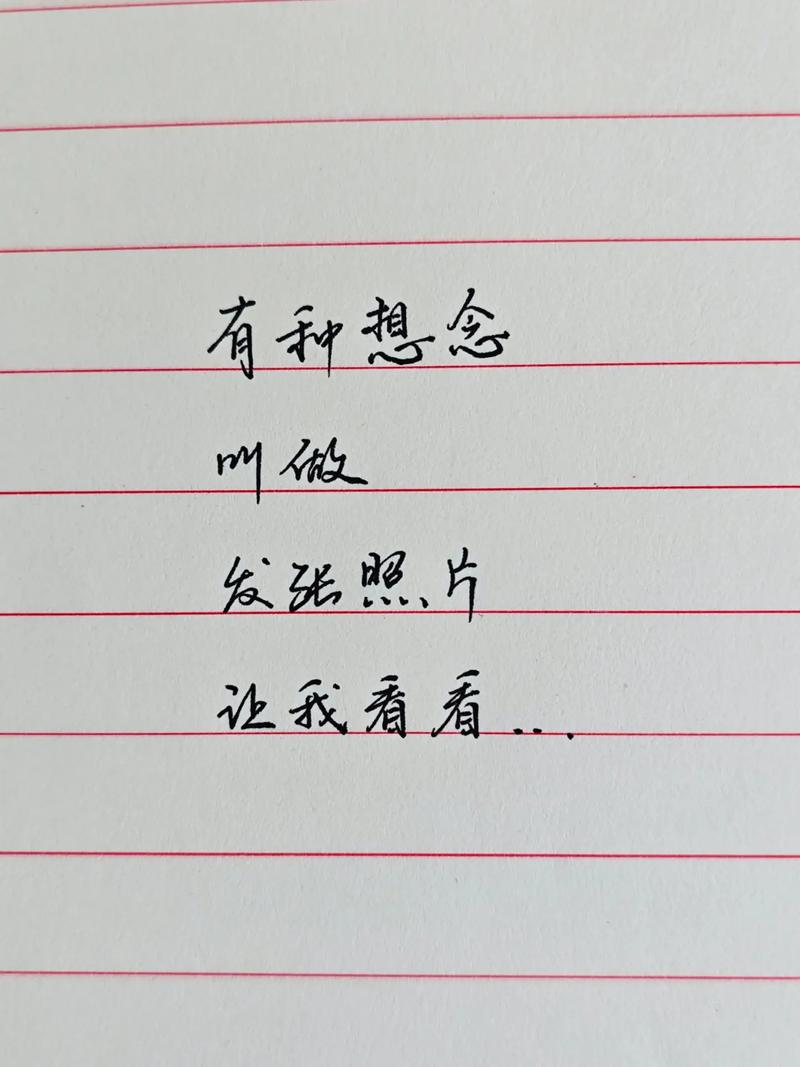 有种想念
叫做
发张照片
让我看看...